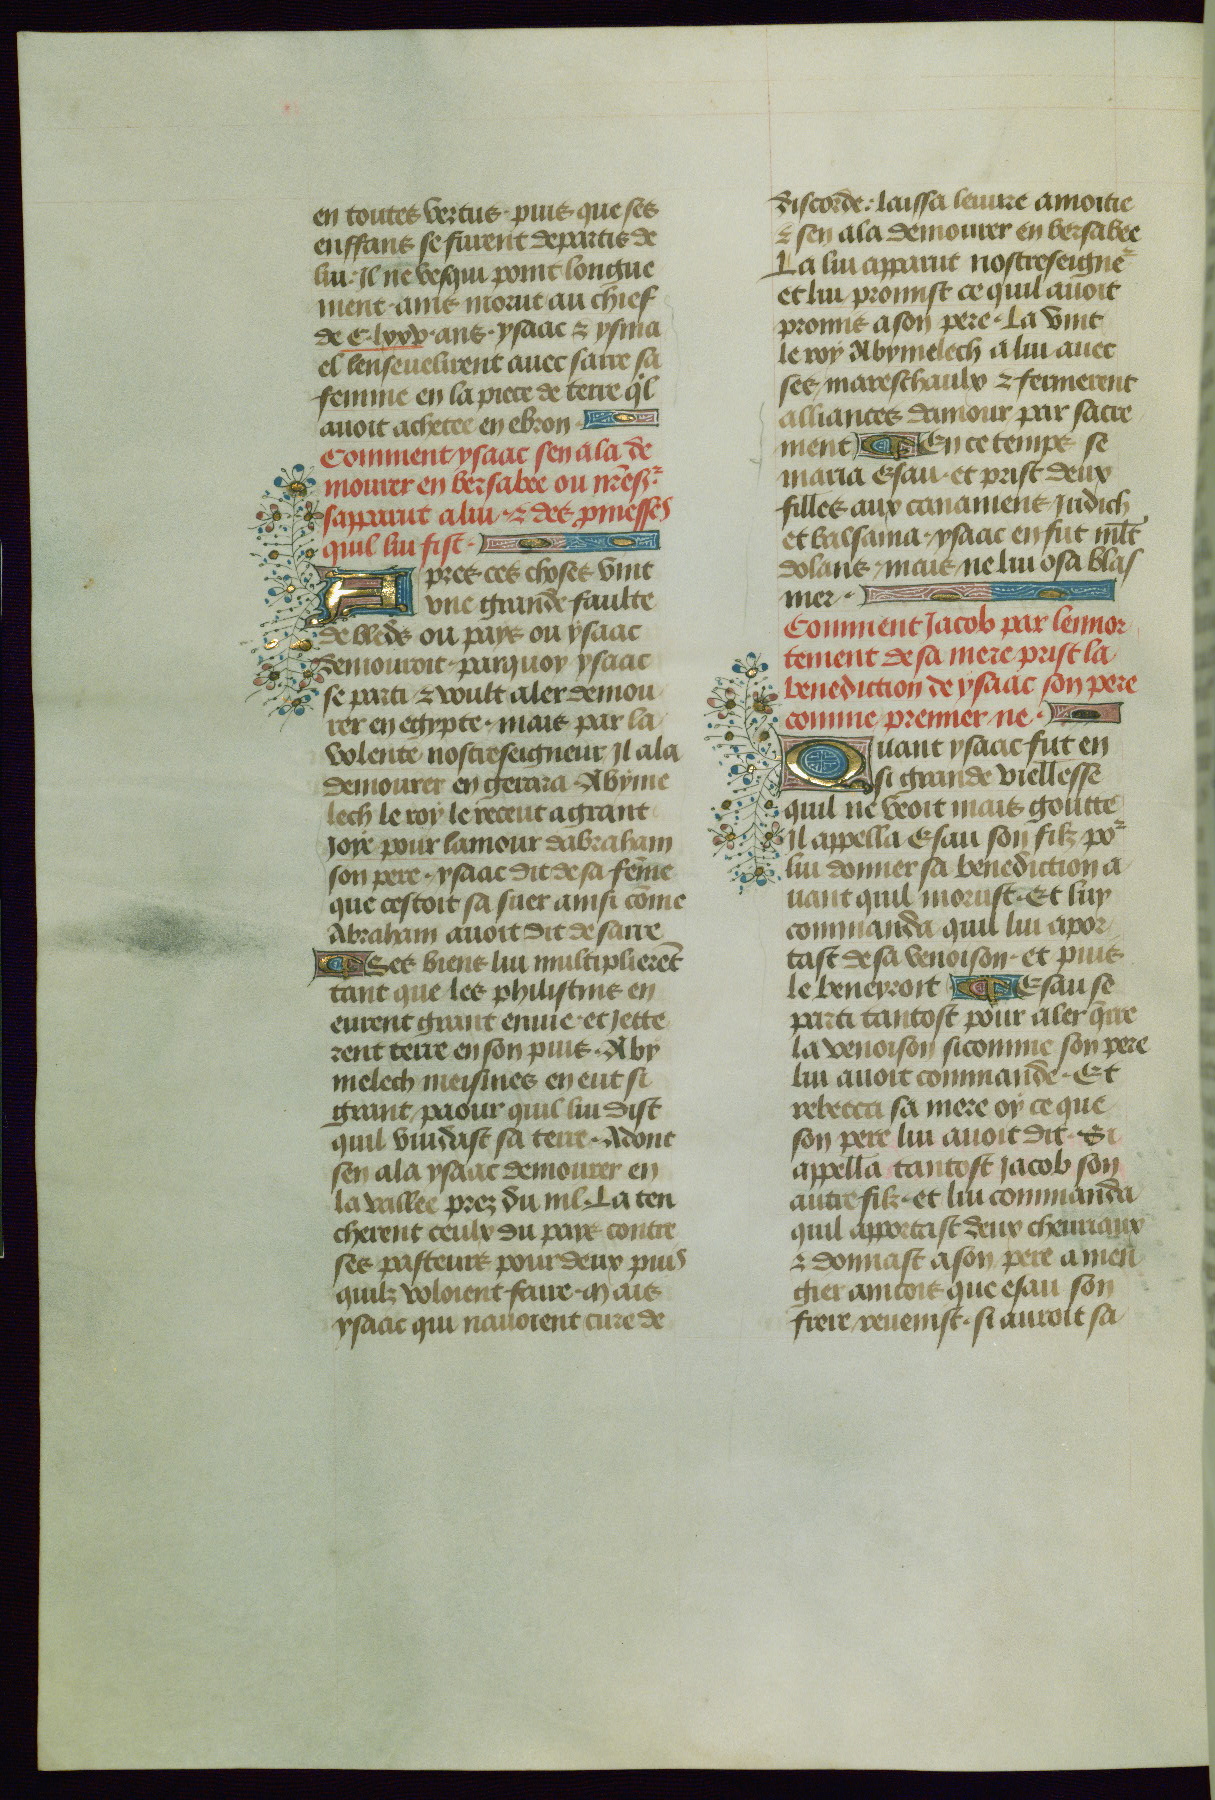 en toutes vertus· puis que ses
enffans se furent departis de
lui· Il ne vesqui point longue
ment· ains morut au chief
de C·lxxv·ans· ysaac ⁊ ysma
el lenseuelirent auec sarre sa
femme en la piece de terre ql̃
auoit achetee en ebron·
Comment ysaac sen ala de
mourer en bersabee ou nr̃e sr̃
sapparut a lui· ⁊ des pmesses
quil lui fist·
Apres ces choses vint
vne grande faulte
de bleds ou pays ou ysaac
demouroit· parquoy ysaac
se parti ⁊ voult aler demou
rer en egypte· mais par la
volente nostreseigneur Il ala
demourer en gerara· Abyme
lech le roy le receut a grant
Joye pour lamour dabraham
son pere· ysaac dit de sa fem̃e
que cestoit sa suer ainsi com̃e
Abraham auoit dit de sarre
¶ Ses biens lui multiplierẽt
tant que les philistins en
eurent grant enuie· et Jette
rent terre en son puis· Aby
melech meismes en eut si
grant paour quil lui dist
quil vuidast sa terre· Adont
sen ala ysaac demourer en
la vallee prez du ml· La ten
cherent ceulx du pays contre
ses pasteurs pour deux puis
quilz voloient faire· Mais
ysaac qui nauoient cure de
discorde: laissa leuure a moitie
⁊ sen ala demourer en bersabee
La lui apparut nostreseigne᷑
et lui promist ce quil auoit
promis a son pere· La vint
le roy Abymelech a lui auec
ses mareschaulx ⁊ fermerent
alliances damour par sacre
ment ¶ En ce temps se
maria Esau· et prist deux
filles aux cananiens Judich
et balsama· ysaac en fut ml̃t
dolans· mais ne lui osa blas
mer·
Comment Jacob par lennor
tement de sa mere prist la
benediction de ysaac son pere
comme premier ne·
Quant ysaac fut en
si grande viellesse
quil ne veoit mais goutte
Il appella Esau son filz po᷑
lui donner sa benediction a
uant quil morust· Et luy
commanda quil lui apor
tast de sa venoison· et puis
le beneyroit ¶ Esau se
parti tantost pour aler q̃rre
la venoison sicomme son pere
lui auoit commande· Et
rebecca sa mere oy ce que
son pere lui auoit dit· Si
appella tantost Jacob son
autre filz· et lui commanda
quil apportast deux cheuriaux
⁊ donnast a son pere a men
gier aincois que esau son
frere reuenist· si auroit sa